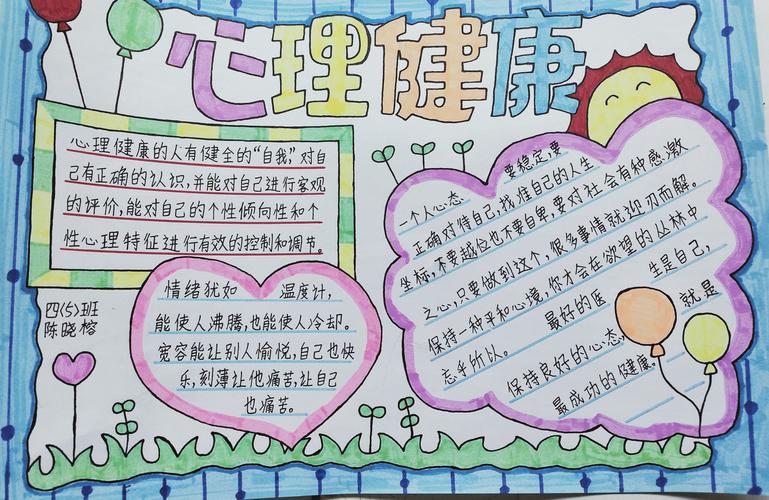 心理健康
心理健康的人有健全的“自我”,对自
己有正确的认识,并能对自己进行客观
的评价,能对自己的个性倾向性和个
性心理特征进行有效的控制和调节。
四(5)班
陈晓榕
情绪犹如 温度计,
能使人沸腾,也能使人冷却。
宽容能让别人愉悦,自己也快
乐,刻薄让他痛苦,让自己
也痛苦。
一个人心态 要稳定,要
正确对待自己,找准自己的人生
坐标,不要越位也不要自卑,要对社会有种感激
之心,只要做到这个,很多事情就迎刃而解。
保持一种平和心境,你才会在欲望的丛林中
忘乎所以。 最好的医 生是自己,
保持良好的心态, 就是
最成功的健康。